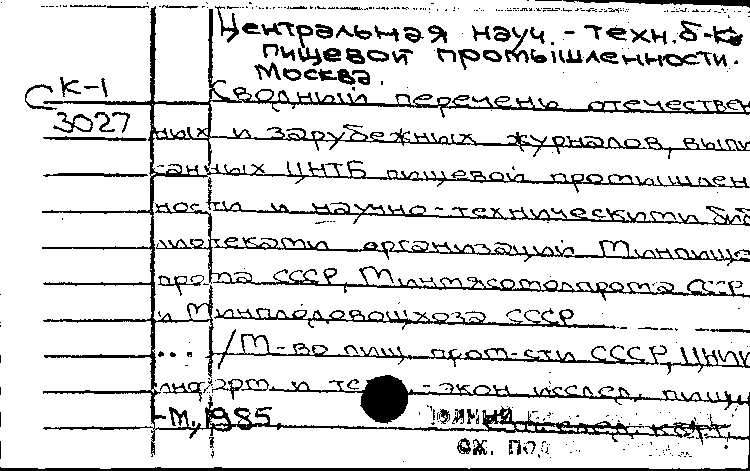 Центральная науч.-техн. б-ка
пищевой промышленности.
Москва.
С К-1
3027
Сводный перечень отечествен
ных и зарубежных журналов, выпи
санных ЦНТБ пищевой промышлен
ности и научно-техническими биб
лиотеками организаций Минпище
прома СССР, Минмясомолпрома СССР
и Минплодовощхоза СССР
... /М-во пищ. пром-сти СССР, ЦНИИ
информ. и тех.-экон исслед. пищ
-М., 1985.